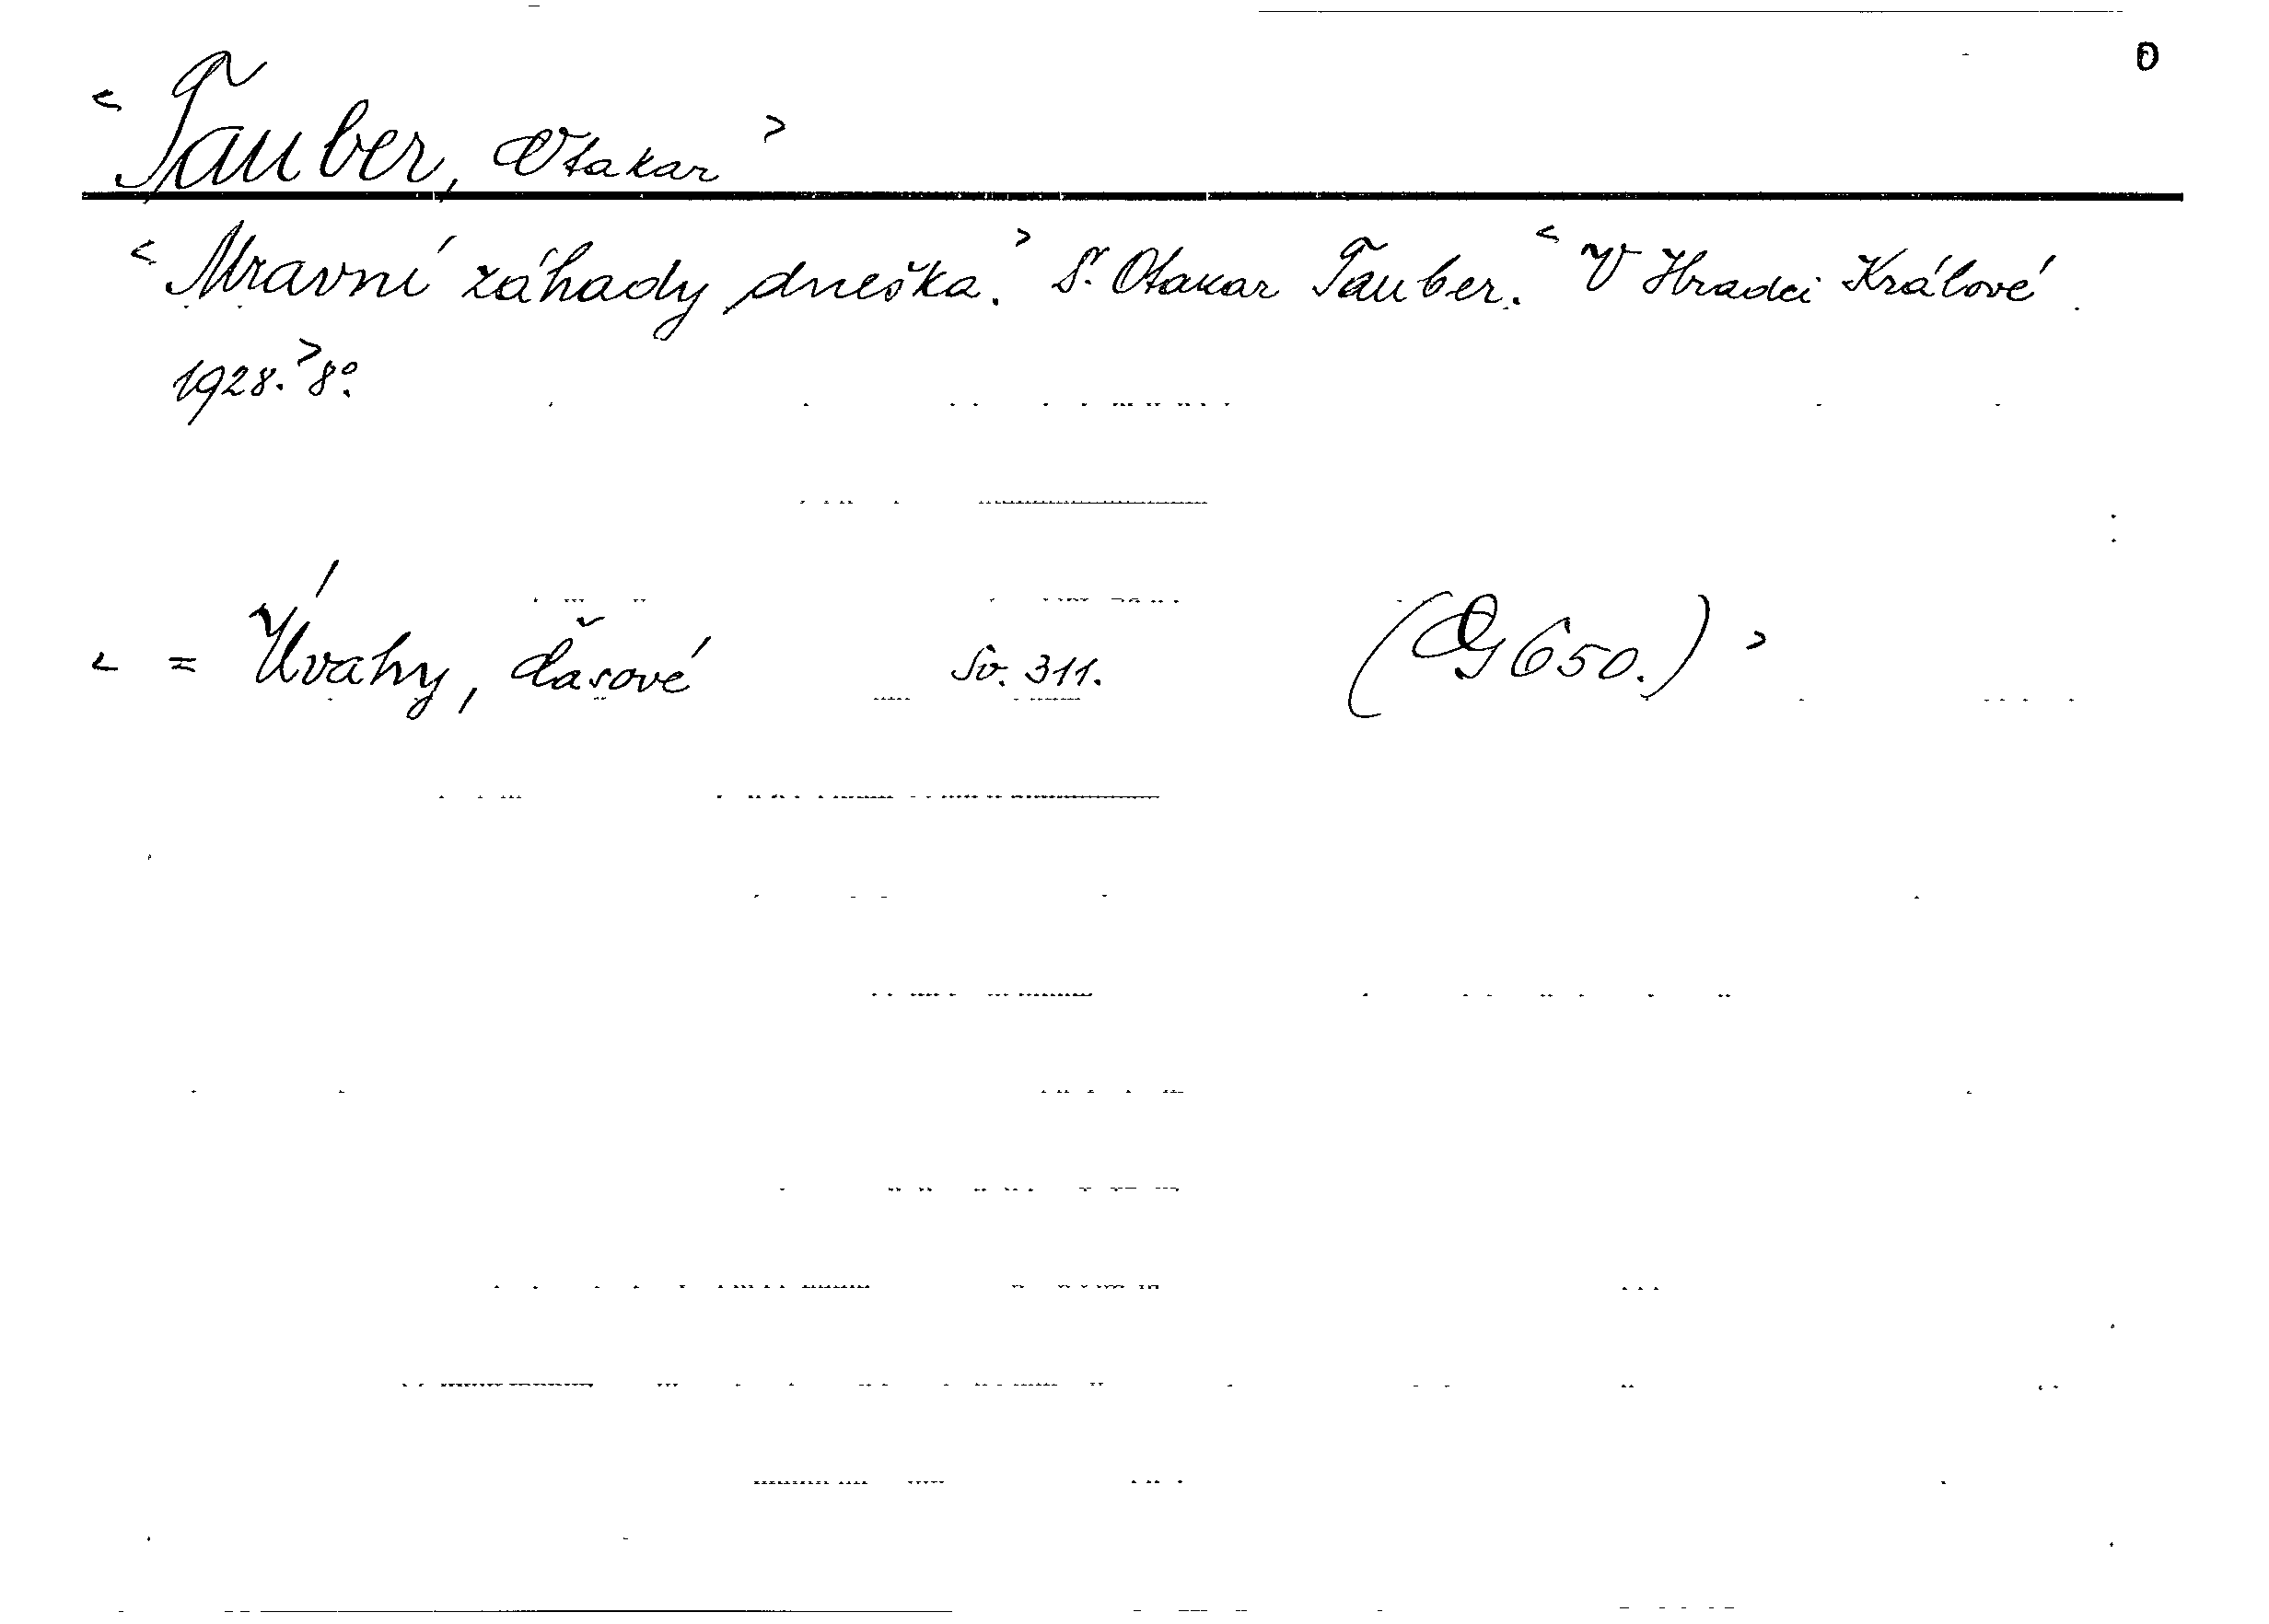 0
< Tauber, Otakar >
< Mravní záhady dneška. > Dr. Otakar Tauber. < V Hradci Králové
1928. > 8°.
< = Úvahy, časové Sv. 311. (G 650.) >